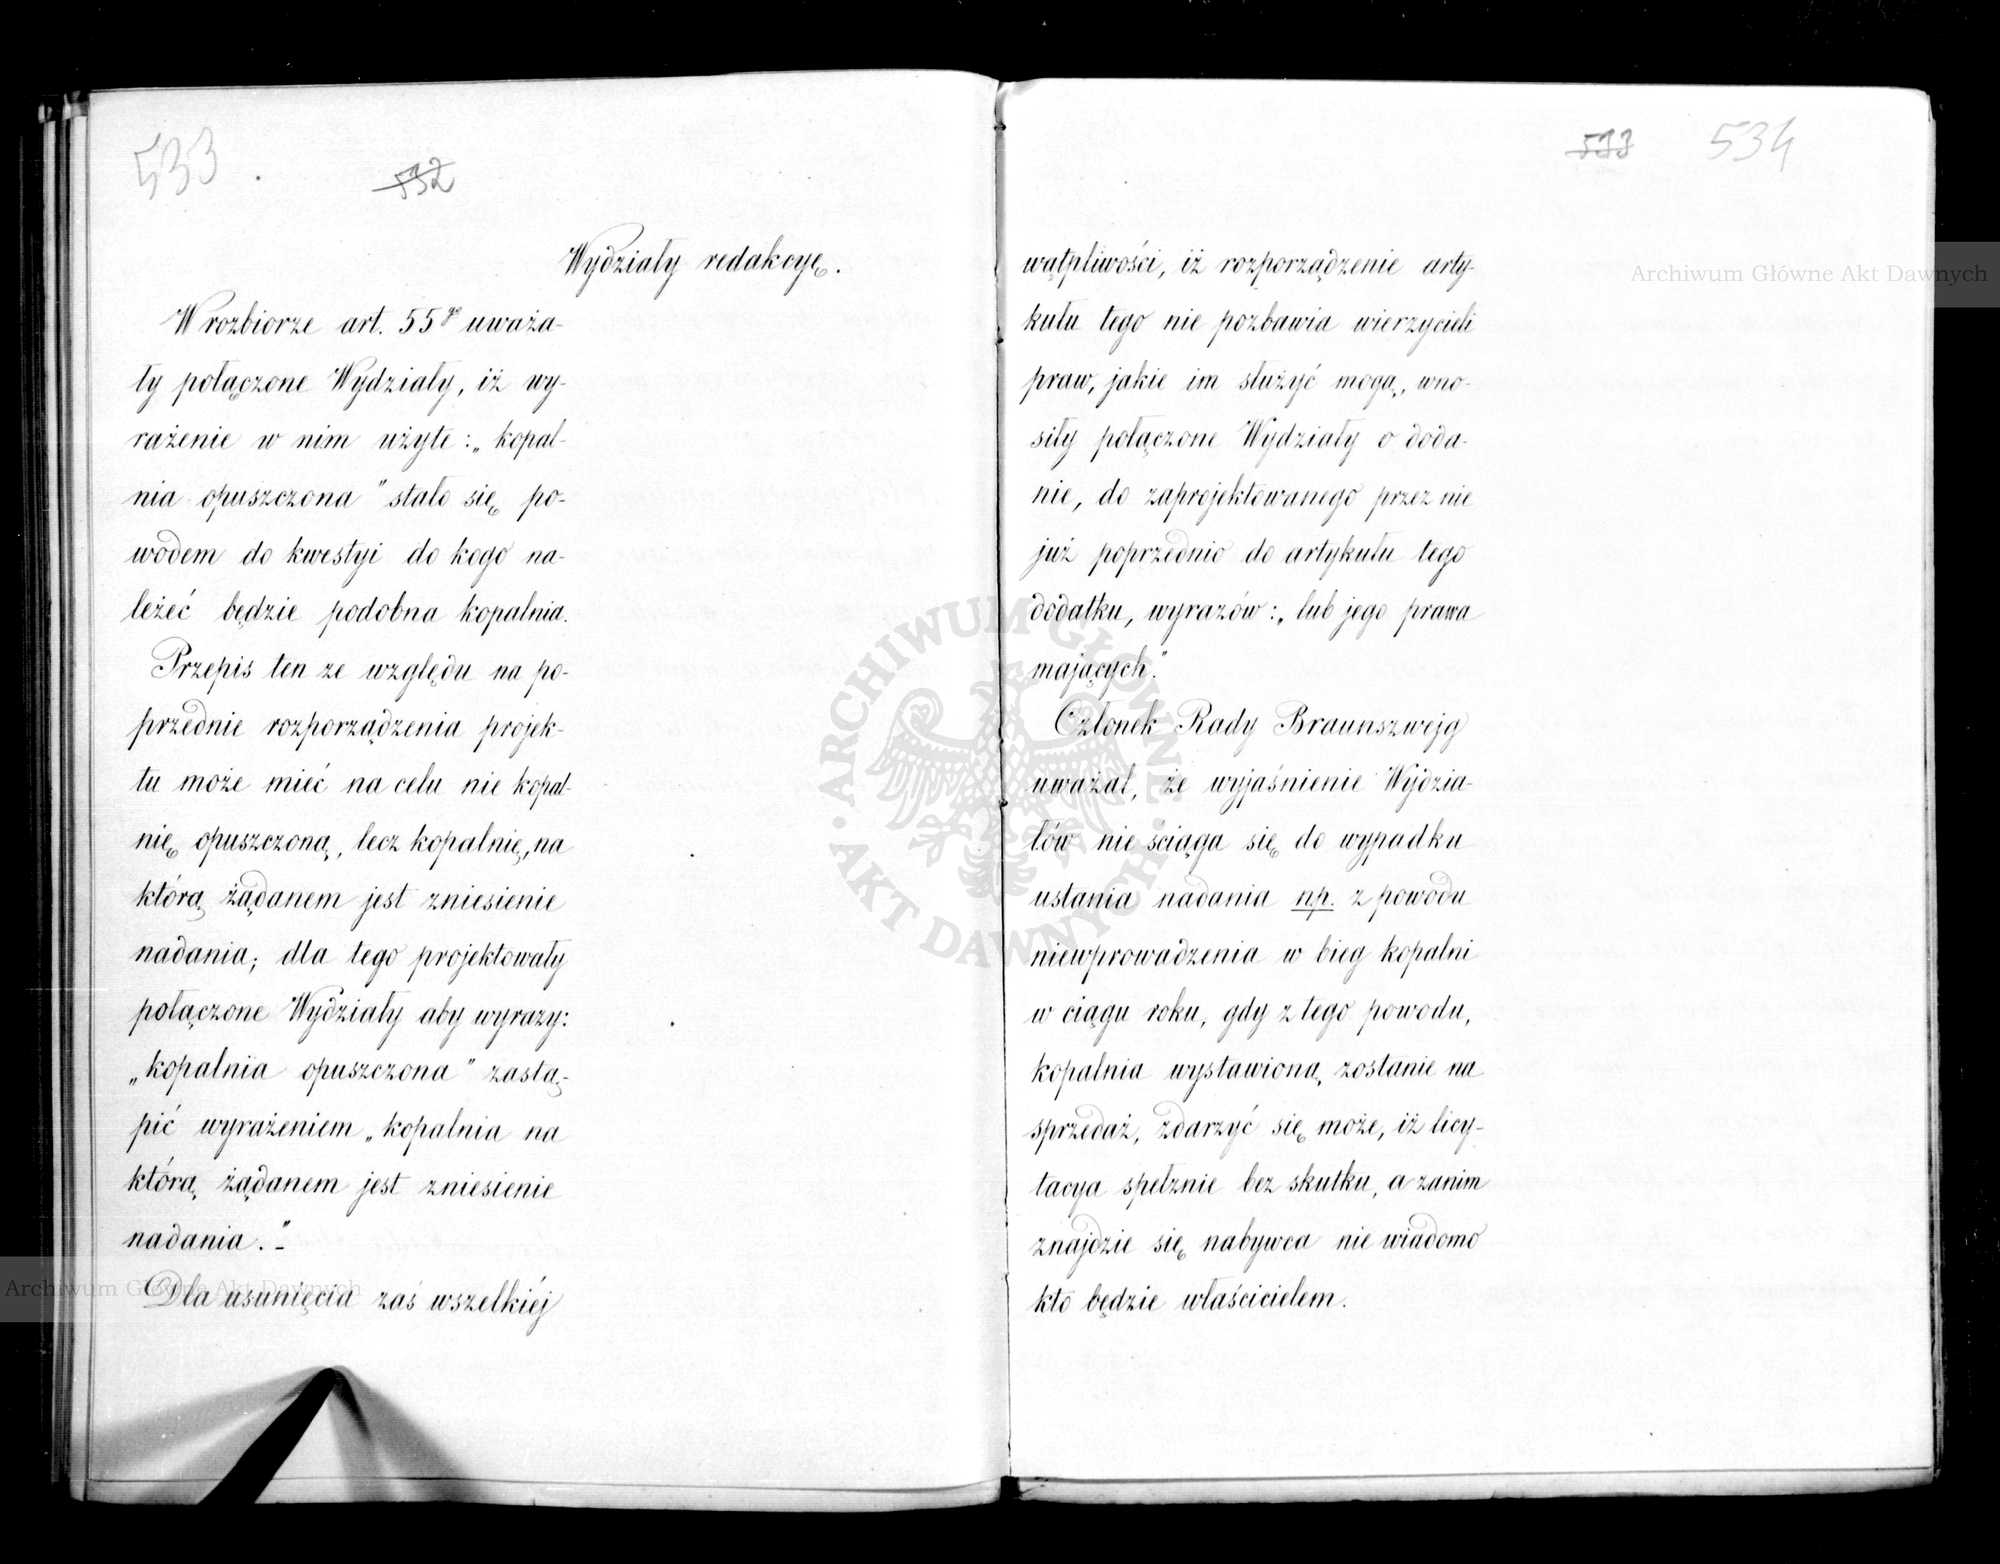 533
532
Wydziały redakcyę.
W rozbiorze art. 55go uważa-
ły połączone Wydziały, iż wy-
rażenie w nim użyte: „kopal-
nia opuszczona" stało się po-
wodem do kwestyi do kogo na-
leżeć będzie podobna kopalnia.
Przepis ten ze względu na po-
przednie rozporządzenia projek-
tu może mieć na celu nie kopal-
nię opuszczoną, lecz kopalnię, na
którą żądanem jest zniesienie
nadania; dla tego projektowały
połączone Wydziały aby wyrazy:
„kopalnia opuszczona" zastą-
pić wyrażeniem „kopalnia na
którą żądanem jest zniesienie
nadania."-
Dla usunięcia zaś wszelkiéj
533 534
wątpliwości, iż rozporządzenie arty-
kułu tego nie pozbawia wierzycieli
praw, jakie im służyć mogą, wno-
siły połączone Wydziały o doda-
nie, do zaprojektowanego przez nie
już poprzednio do artykułu tego
dodatku, wyrazów: „lub jego prawa
mających."
Członek Rady Braunszwejg
uważał, że wyjaśnienie Wydzia-
łów nie ściąga się do wypadku
ustania nadania np. z powodu
niewprowadzenia w bieg kopalni
w ciągu roku, gdy z tego powodu,
kopalnia wystawioną zostanie na
sprzedaż, zdarzyć się może, iż licy-
tacya spełznie bez skutku, a zanim
znajdzie się nabywca nie wiadomo
kto będzie właścicielem.
Archiwum Główne Akt Dawnych
Archiwum Główne Akt Dawnych
ARCHIWUM GŁÓWNE · AKT DAWNYCH ·